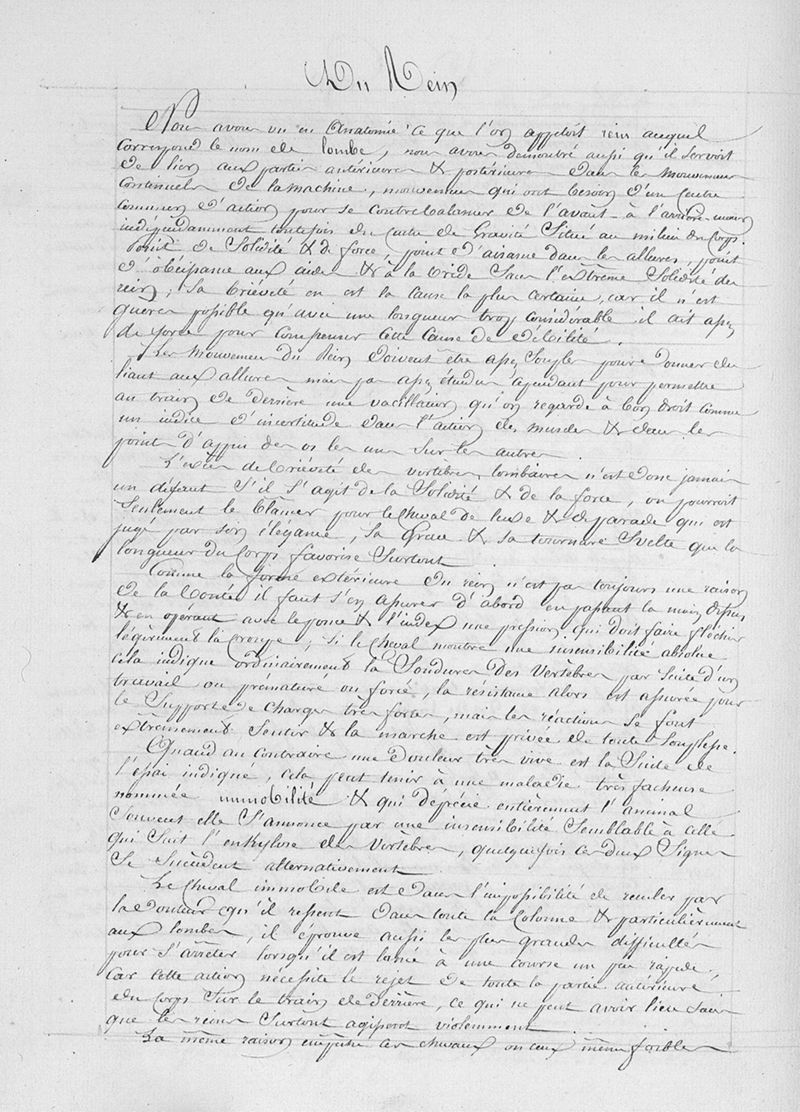 Du Rein
Nous avons vu en Anatomie ce que l'on appeloit rein auquel
correspond le nom de lombe, nous avons demontré aussi qu'il servoit
de lien aux parties antérieures & postérieures dans les mouvemens
continuels de la machine, mouvemens qui ont besoin d'un centre
commun d'action pour se contrebalancer de l'avant à l'arrière-main
indépendamment toutefois du centre de Gravité Situé au milieu du corps.
Point de Solidité & de force, point d'aisance dans les allures, point
d'obéissance aux aides & à la bride Sans l'extrême Solidité du
rein; Sa brièveté en est la cause la plus certaine, car il n'est
guères possible qu'avec une longueur trop considérable il ait assez
de force pour compenser cette Cause de débilité.
Les Mouvemens du Rein doivent être assez Souples pour donner du
liant aux allures mais pas assez étendus cependant pour permettre
au train de derrière une vacillation qu'on regarde à bon droit comme
un indice d'incertitude dans l'action des muscles & dans les
points d'appui des os les uns Sur les autres.
L'excès de brièveté des vertèbres lombaires n'est donc jamais
un défaut S'il S'agit de la Solidité & de la force, on pourroit
Seulement le blâmer pour le cheval de luxe & de parade qui est
jugé par son élégance, Sa Grace & Sa tournure Svelte que la
longueur du Corps favorise Surtout
Comme la forme extérieure du rein n'est pas toujours une raison
de la bonté il faut S'en assurer d'abord en passant la main dessus
& en opérant avec le pouce & l'index une pression qui doit faire fléchir
légèrement la croupe; Si le cheval montre une insensibilité absolue
cela indique ordinairement la Soudure des Vertèbres par Suite d'un
travail ou prématuré ou forcé, la résistance alors est assurée pour
le Supporte de charges très fortes, mais les réactions Se font
extrêmement Sentir & la marche est privée de toute Souplesse.
Quand au contraire une douleur très vive est la Suite de
l'essai indiqué, cela peut tenir à une maladie très facheuse
nommée immobilité & qui déprécie entièrement l'animal
Souvent elle S'annonce par une insensibilité Semblable à celle
qui Suit l'enkylose des Vertèbres, quelquefois ces deux Signes
Se Succèdent alternativement
Le Cheval immobile est dans l'impossibilité de reculer par
la douleur qu'il ressent dans toute la Colonne & particulièrement
aux lombes, il éprouve aussi les plus grandes difficultés
pour S'arrêter lorsqu'il est lancé à une course un peu rapide,
Car cette action nécessite le rejet de toute la partie antérieure
du Corps Sur le train de derrière, ce qui ne peut avoir lieu Sans
que les reins Surtout agissent violemment
La même raison empêche ces chevaux ou ceux même foibles